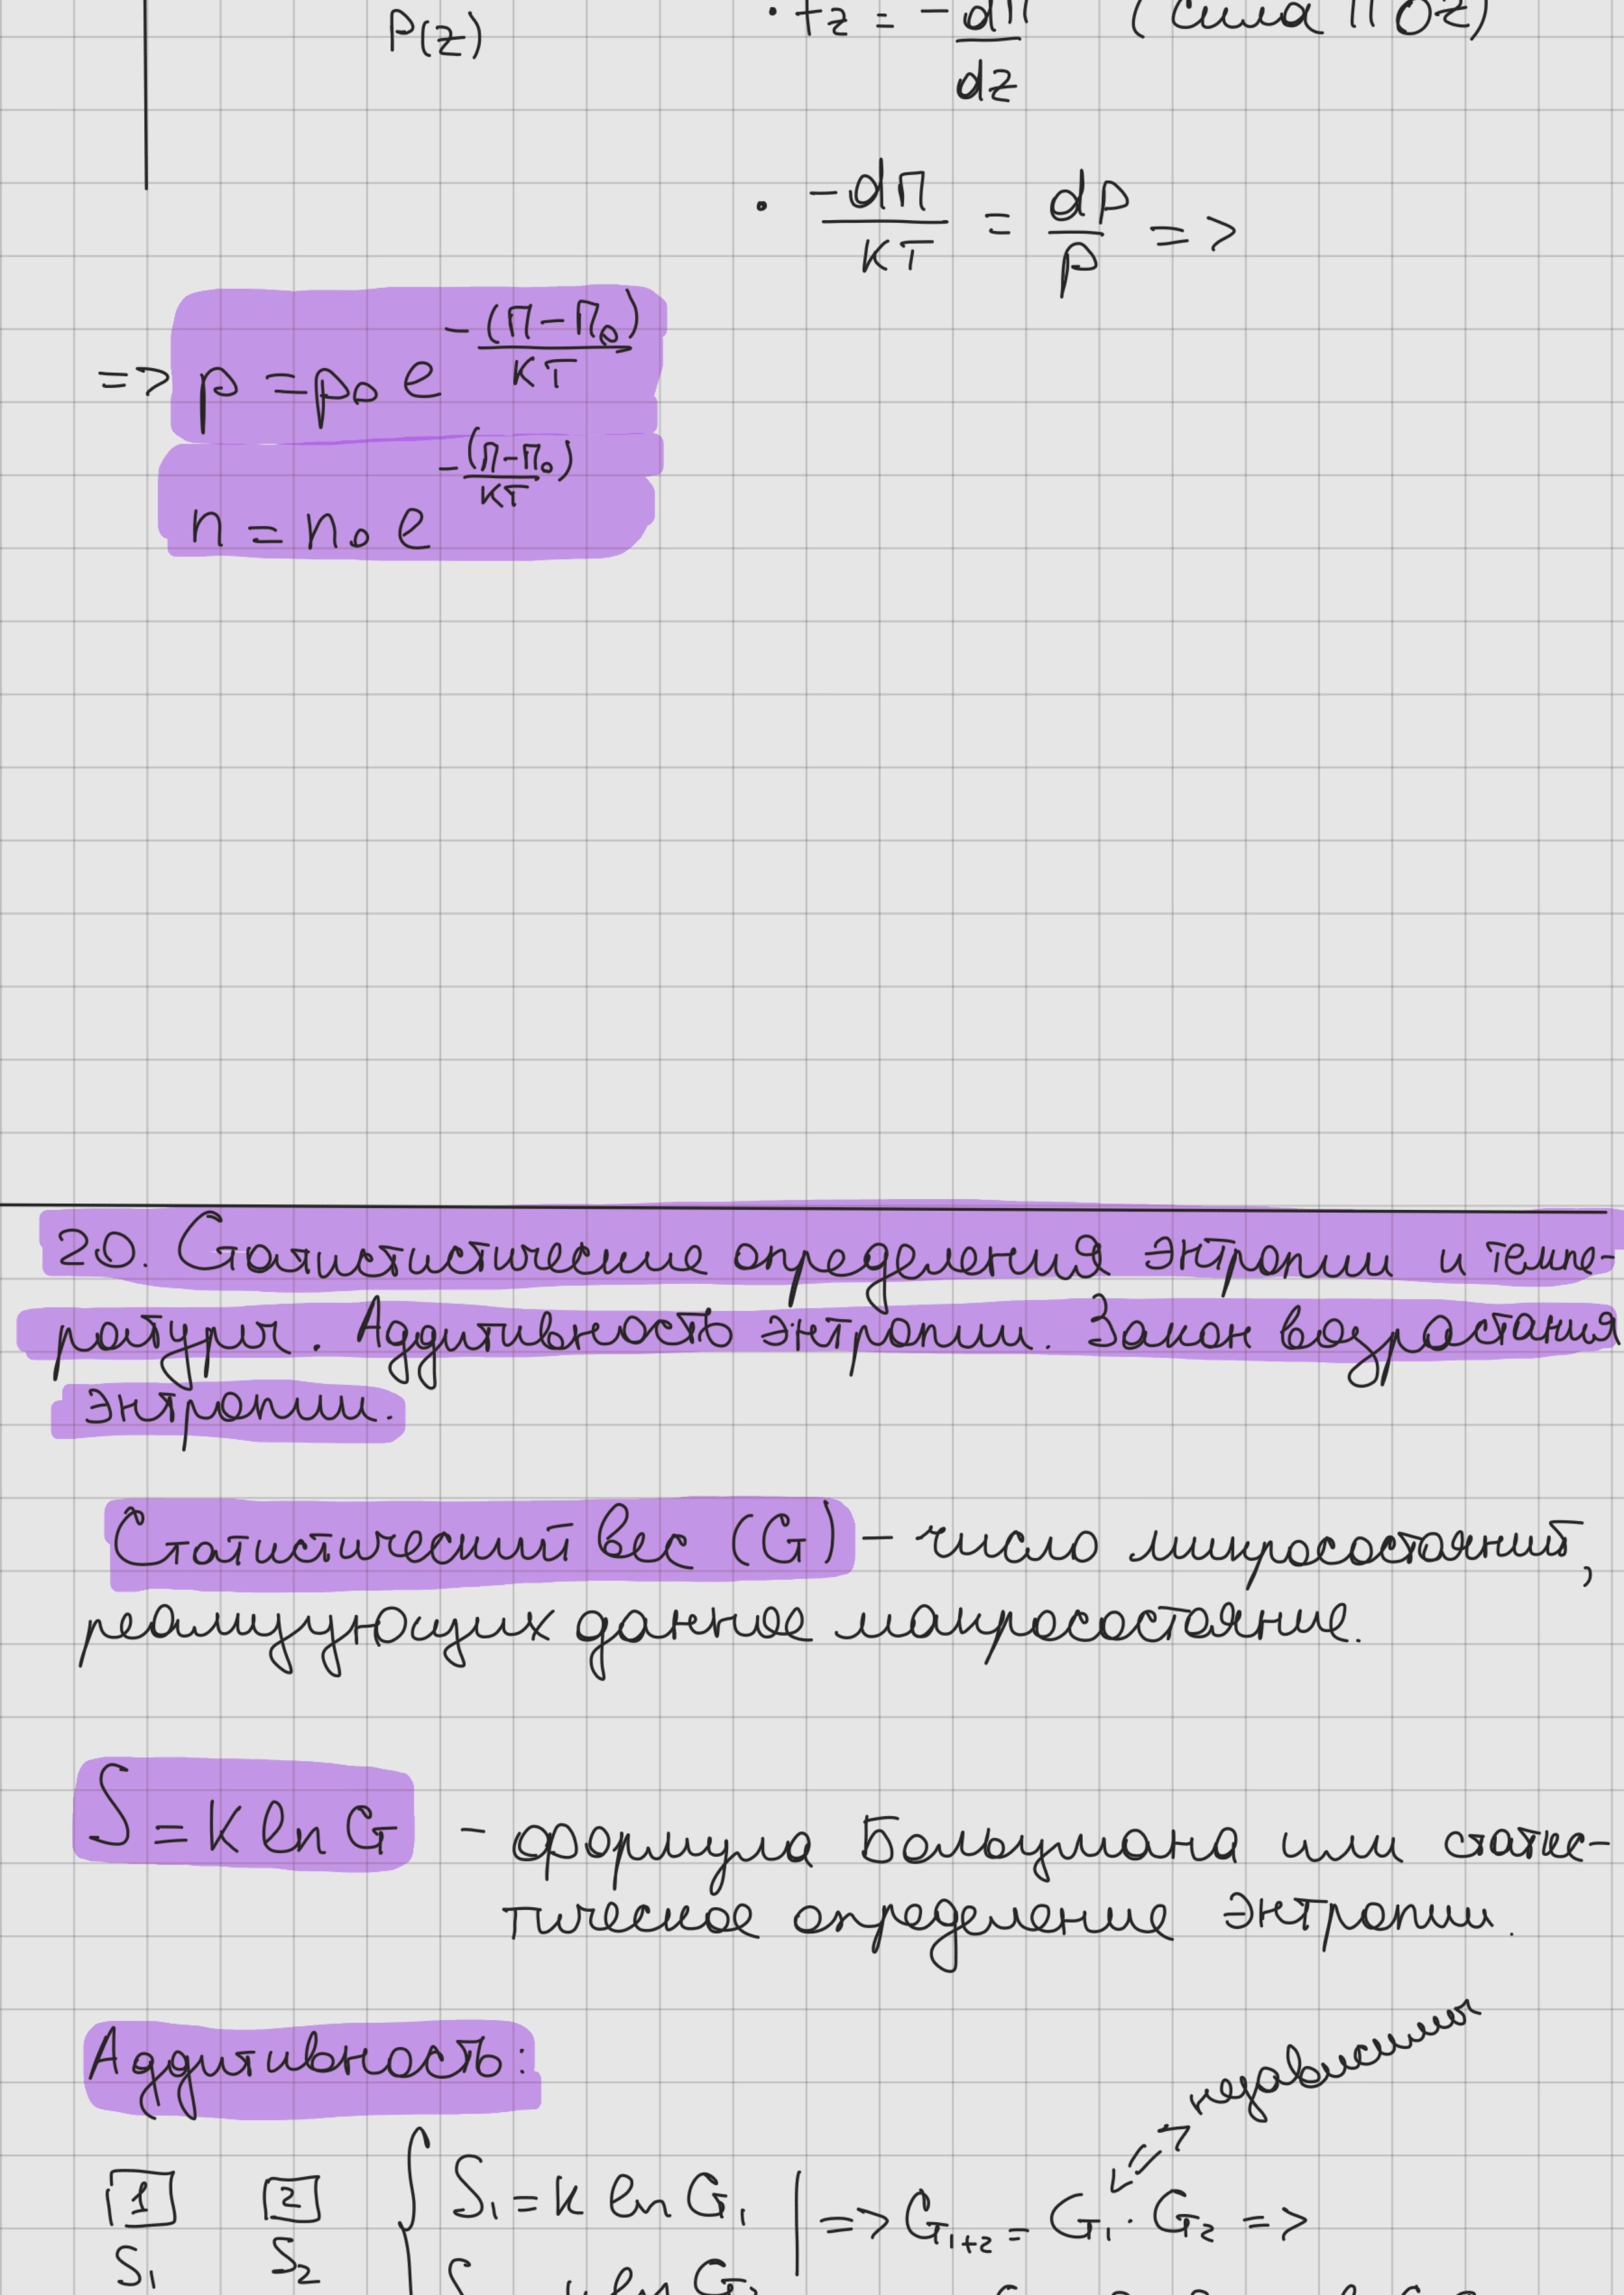 P(z)
· fz = - dП/dz (сила || Oz)
· -dП/кТ = dP/P =>
=> p = p₀ e^(-(П-П₀)/кТ)
n = n₀ e^(-(П-П₀)/кТ)
20. Статистические определения энтропии и темпе-
ратуры. Аддитивность энтропии. Закон возрастания
энтропии.
Статистический вес (G) – число микросостояний,
реализующих данное макросостояние.
S = к ln G – формула Больцмана или статис-
тическое определение энтропии.
Аддитивность:
независимы
1 2 S₁ = к ln G₁ | => G₁₊₂ = G₁ · G₂ =>
S₁ S₂